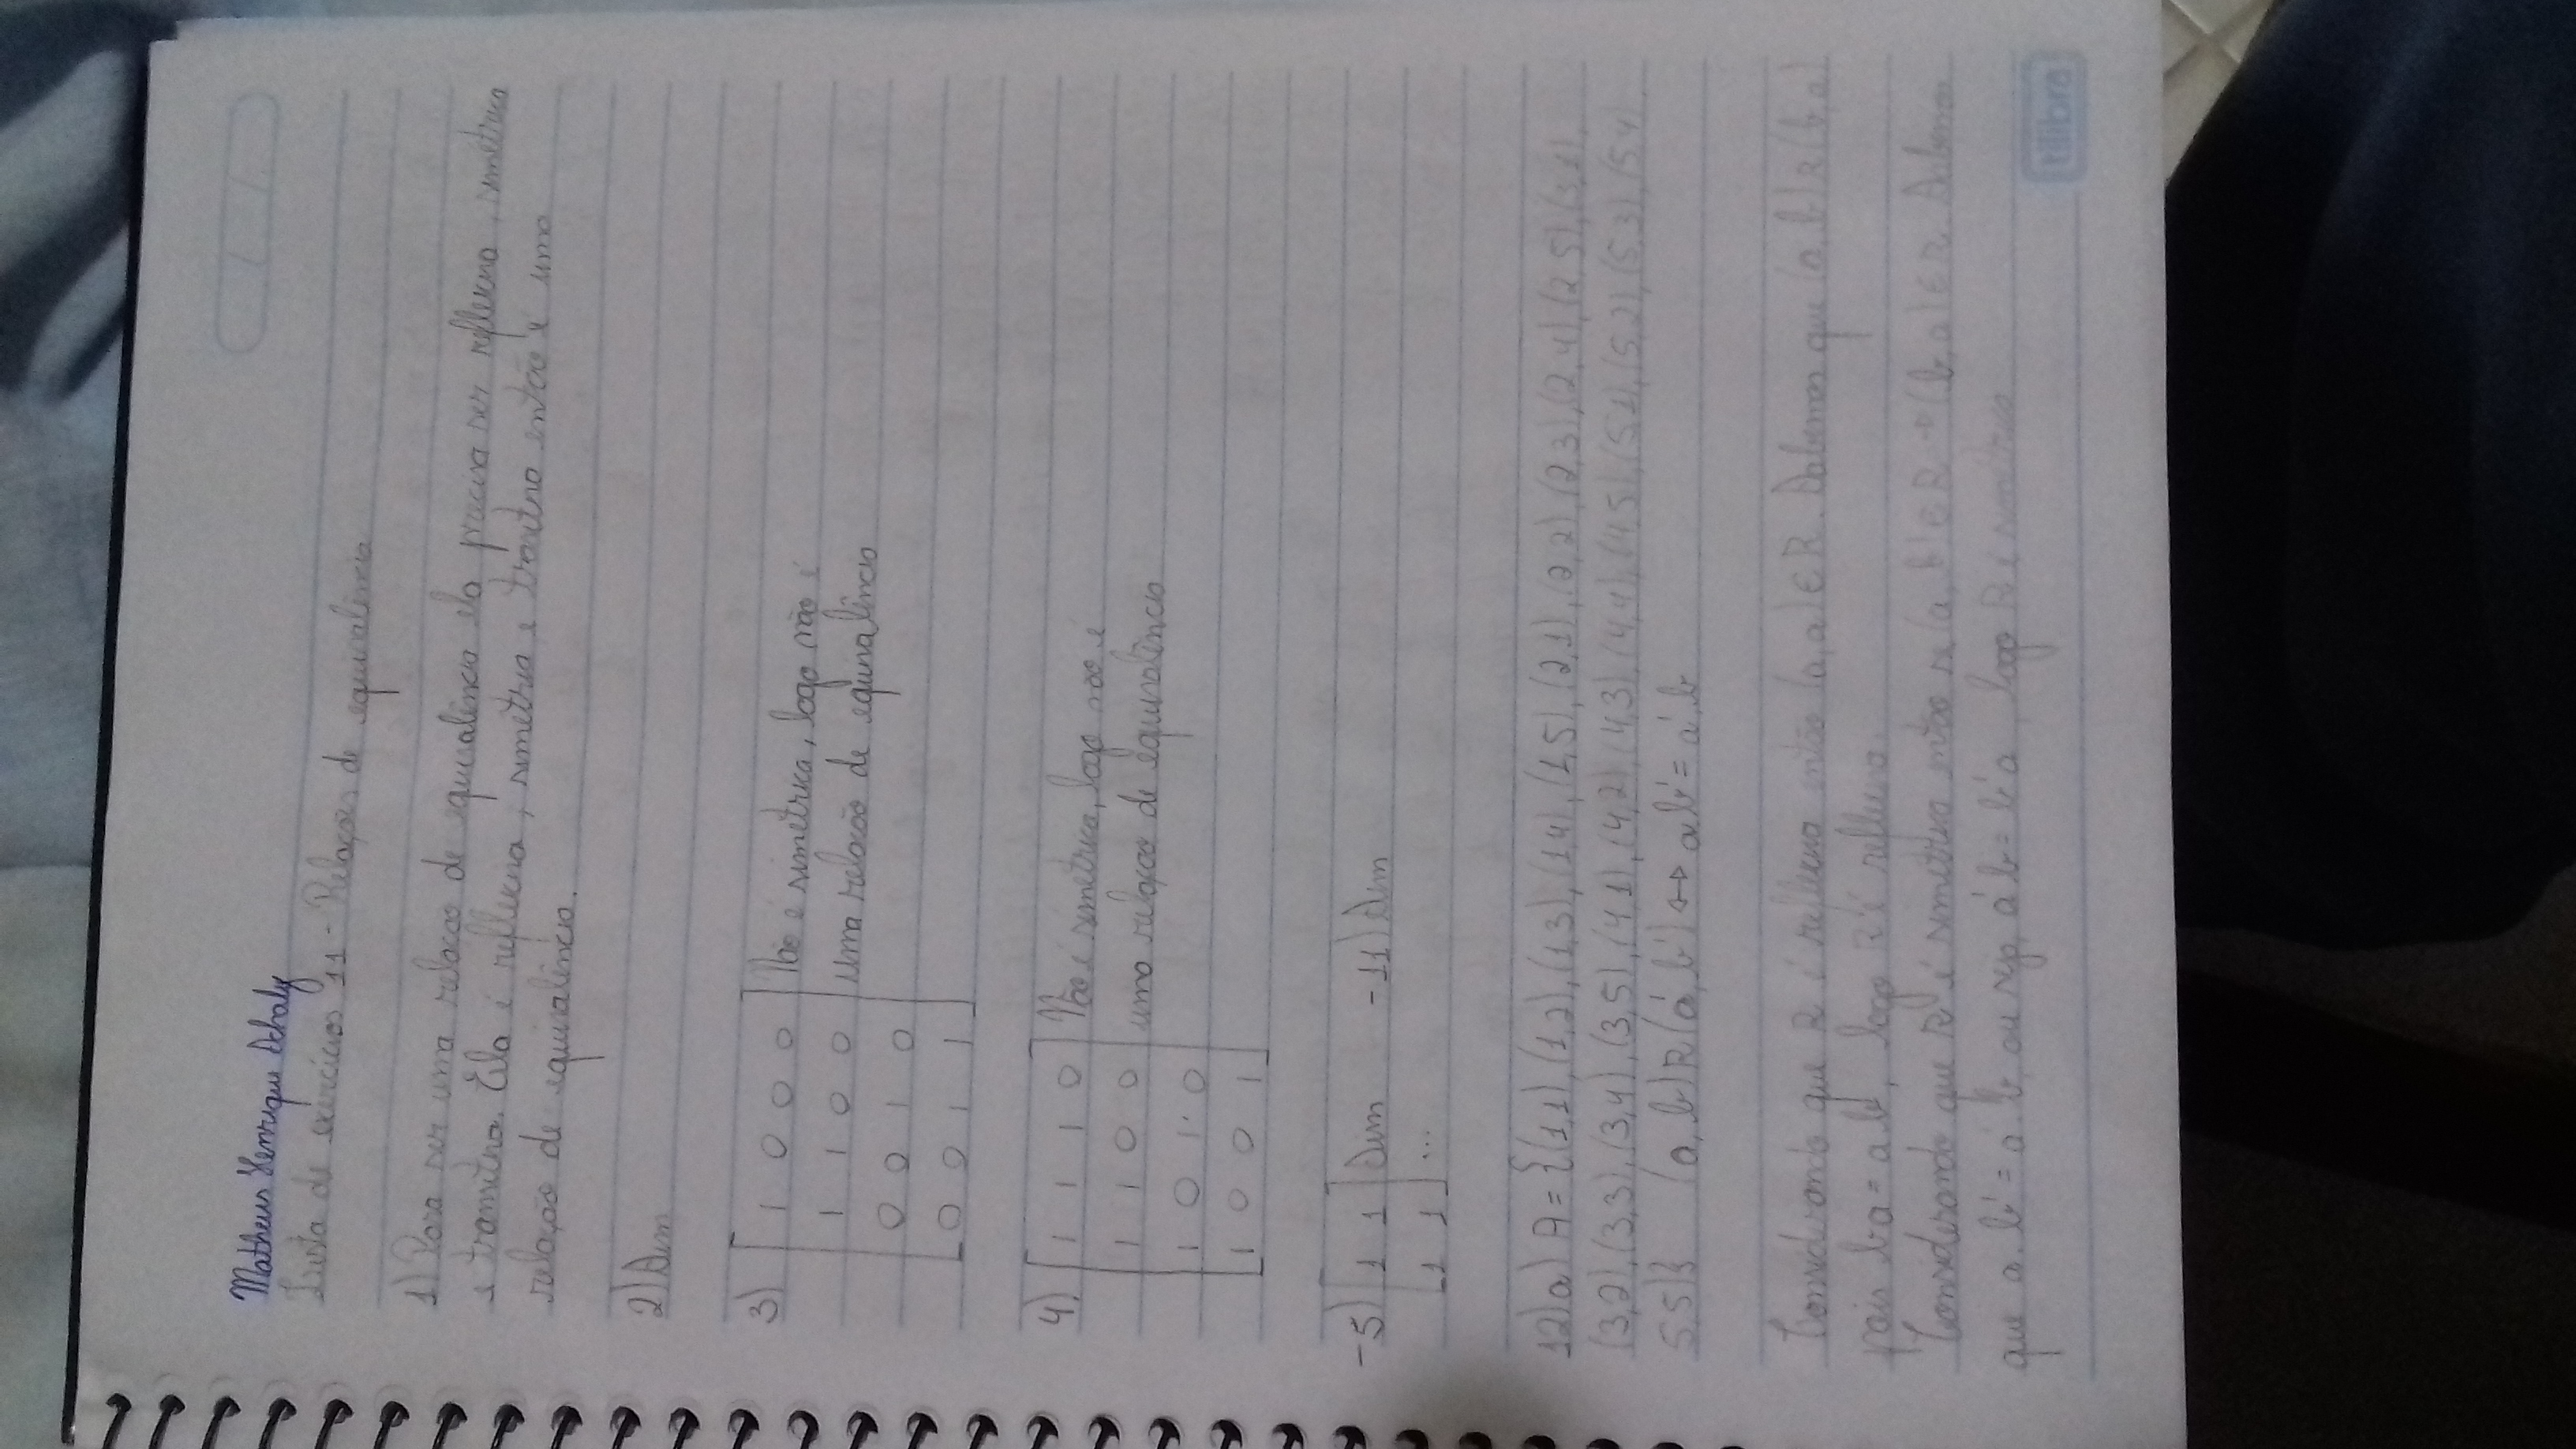 Matheus Henrique Schaly
Lista de exercícios 11 - Relações de equivalência
1) Para ser uma relacao de equivalência ela precisa ser reflexiva, simétrica
e transitiva. Ela é reflexiva, simétria e transitiva então é uma
relação de equivalência.
2) Sim
3) [ 1 0 0 0 ] Não é simétrica, logo não é
1 1 0 0 uma relacão de equivalência
0 0 1 0
0 0 1 1
4) [ 1 1 1 0 ] Não é simetrica, logo não é
1 1 0 0 uma relaçao de equivalência
1 0 1 0
1 0 0 1
-5) [ 1 1 ] Sim -11) Sim
1 1 ...
12) a) A = {(1,1), (1,2), (1,3), (1,4), (1,5), (2,1), (2,2), (2,3), (2,4), (2,5), (3,1),
(3,2), (3,3), (3,4), (3,5), (4,1), (4,2), (4,3), (4,4), (4,5), (5,1), (5,2), (5,3), (5,4)
5,5)} (a, b) R (a', b') ↔ ab' = a'b
Considerando que R é reflexiva então (a, a) ∈ R. Sabemos que (a, b) R (b, a)
pois ba = ab, logo R é reflexiva.
Considerando que R é simétrica então se (a, b) ∈ R → (b, a) ∈ R. Sabemos
que a.b' = a'.b, ou seja, a'b = b'a, logo R é simétrica
tilibra